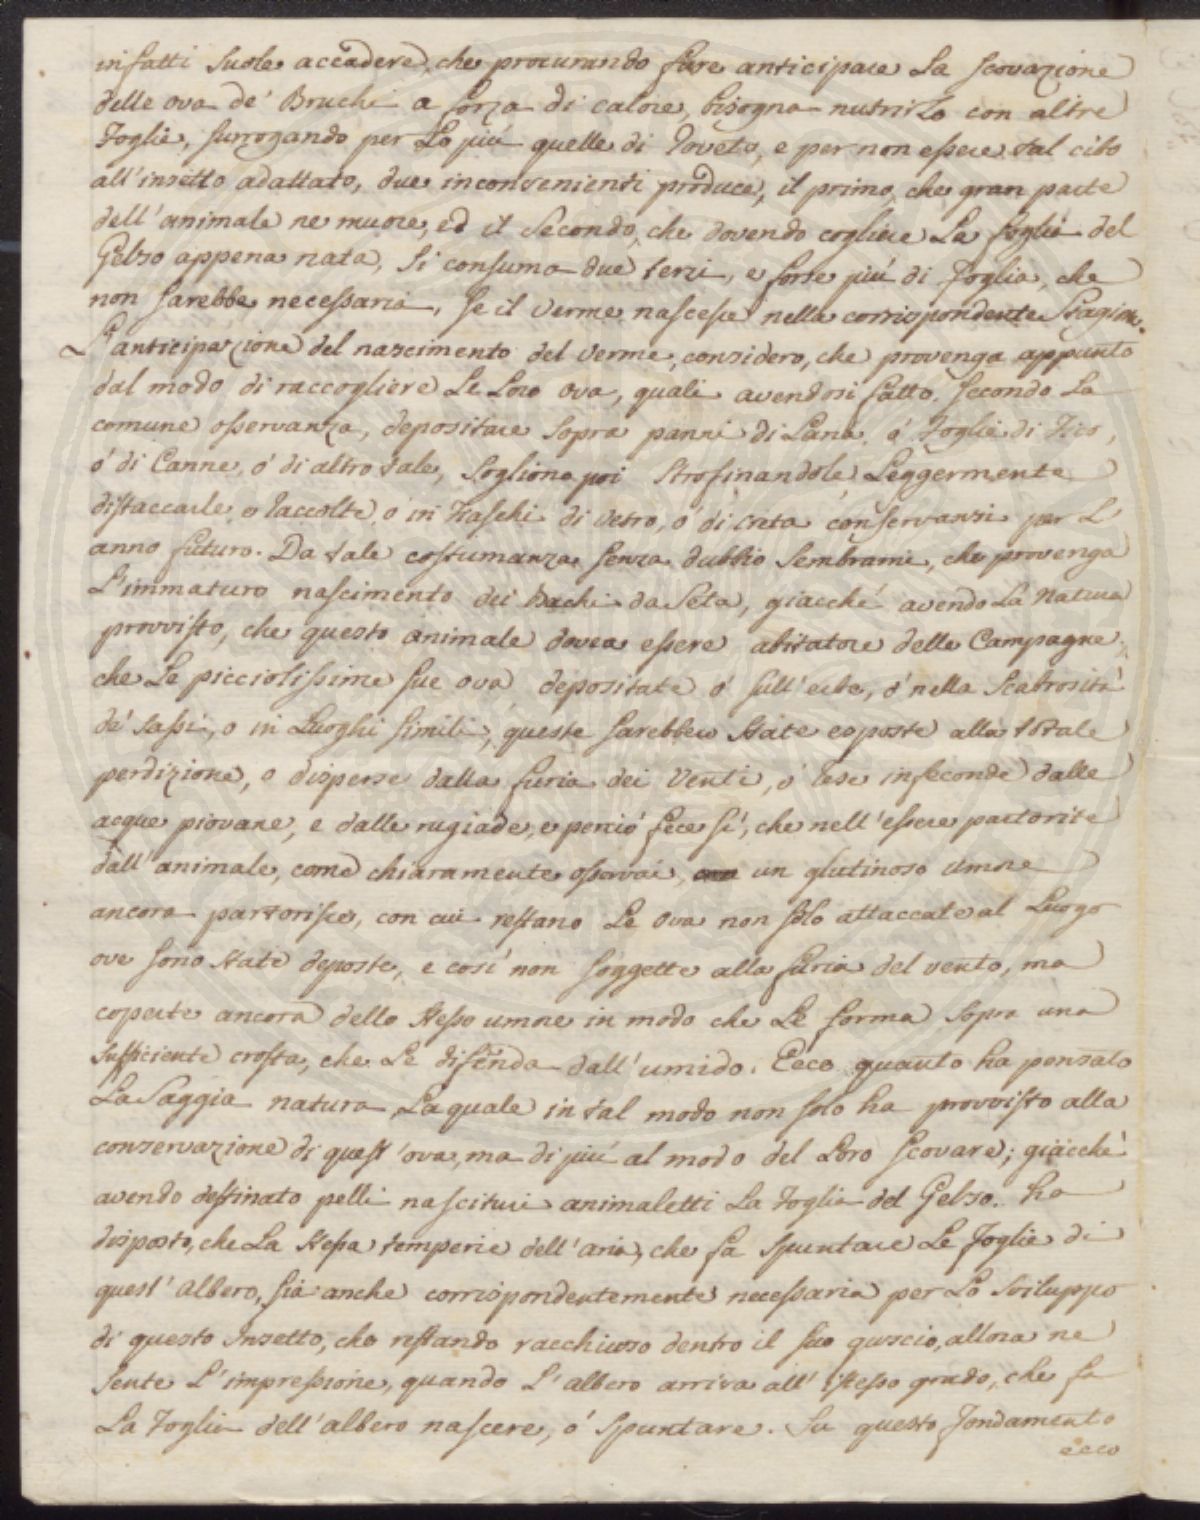 infatti suole accadere, che procurando fare anticipare la scovazione
delle ova de' Bruchi a forza di calore, bisogna nutrirlo con altre
Foglie, surrogando per lo più quelle di Roveto, e per non essere tal cibo
all'insetto adattato, due inconvenienti produce, il primo, che gran parte
dell'animale ne muore, ed il secondo, che dovendo cogliere la foglia del
Gelso appena nata, si consuma due terzi, e forse più di Foglia, che
non sarebbe necessaria, se il verme nascesse nella corrispondente Stagione.
L'anticipazione del nascimento del verme, considero, che provenga appunto
dal modo di raccogliere le loro ova, quali avendosi fatto, secondo la
comune osservanza, depositare sopra panni di Lana, o' Foglie di Fico,
o' di Canne, o' di altro tale, sogliono poi strofinandole leggermente
distaccarle e raccolte o in Fiaschi di vetro, o' di creta conservansi per l'
anno futuro. Da tale costumanza senza dubbio sembrami, che provenga
l'immaturo nascimento dei Bachi da Seta, giacché avendo la Natura
provvisto, che questo animale dovea essere abitatore delle Campagne,
che le picciolissime sue ova depositate o' sull'erbe, o' nella scabrosità
de' sassi, o in luoghi simili, queste sarebbero state esposte alla totale
perdizione, o disperse dalla furia dei Venti, o' rese infeconde dalle
acque piovane, e dalle rugiade, e perciò fece sì, che nell'essere partorite
dall'animale, come chiaramente osservai, un glutinoso umore
ancora partorisce, con cui restano le ova non solo attaccate al luogo
ove sono state deposte, e così non soggette alla furia del vento, ma
coperte ancora dello stesso umore in modo che le forma sopra una
sufficiente crosta, che le difenda dall'umido. Ecco quanto ha pensato
la Saggia natura la quale in tal modo non solo ha provvisto alla
conservazione di quest'ova, ma di più al modo del loro scovare; giacchè
avendo destinato pelli nascituri animaletti la Foglia del Gelso. ha
disposto, che la stessa temperie dell'aria, che fa spuntare le Foglie di
quest'albero, sia anche corrispondentemente necessaria per lo sviluppo
di questo Insetto, che restando racchiuso dentro il suo guscio, allora ne
sente l'impressione, quando l'albero arriva all'istesso grado, che fa
la Foglia dell'albero nascere, o' spuntare. Su questo fondamento
ecco